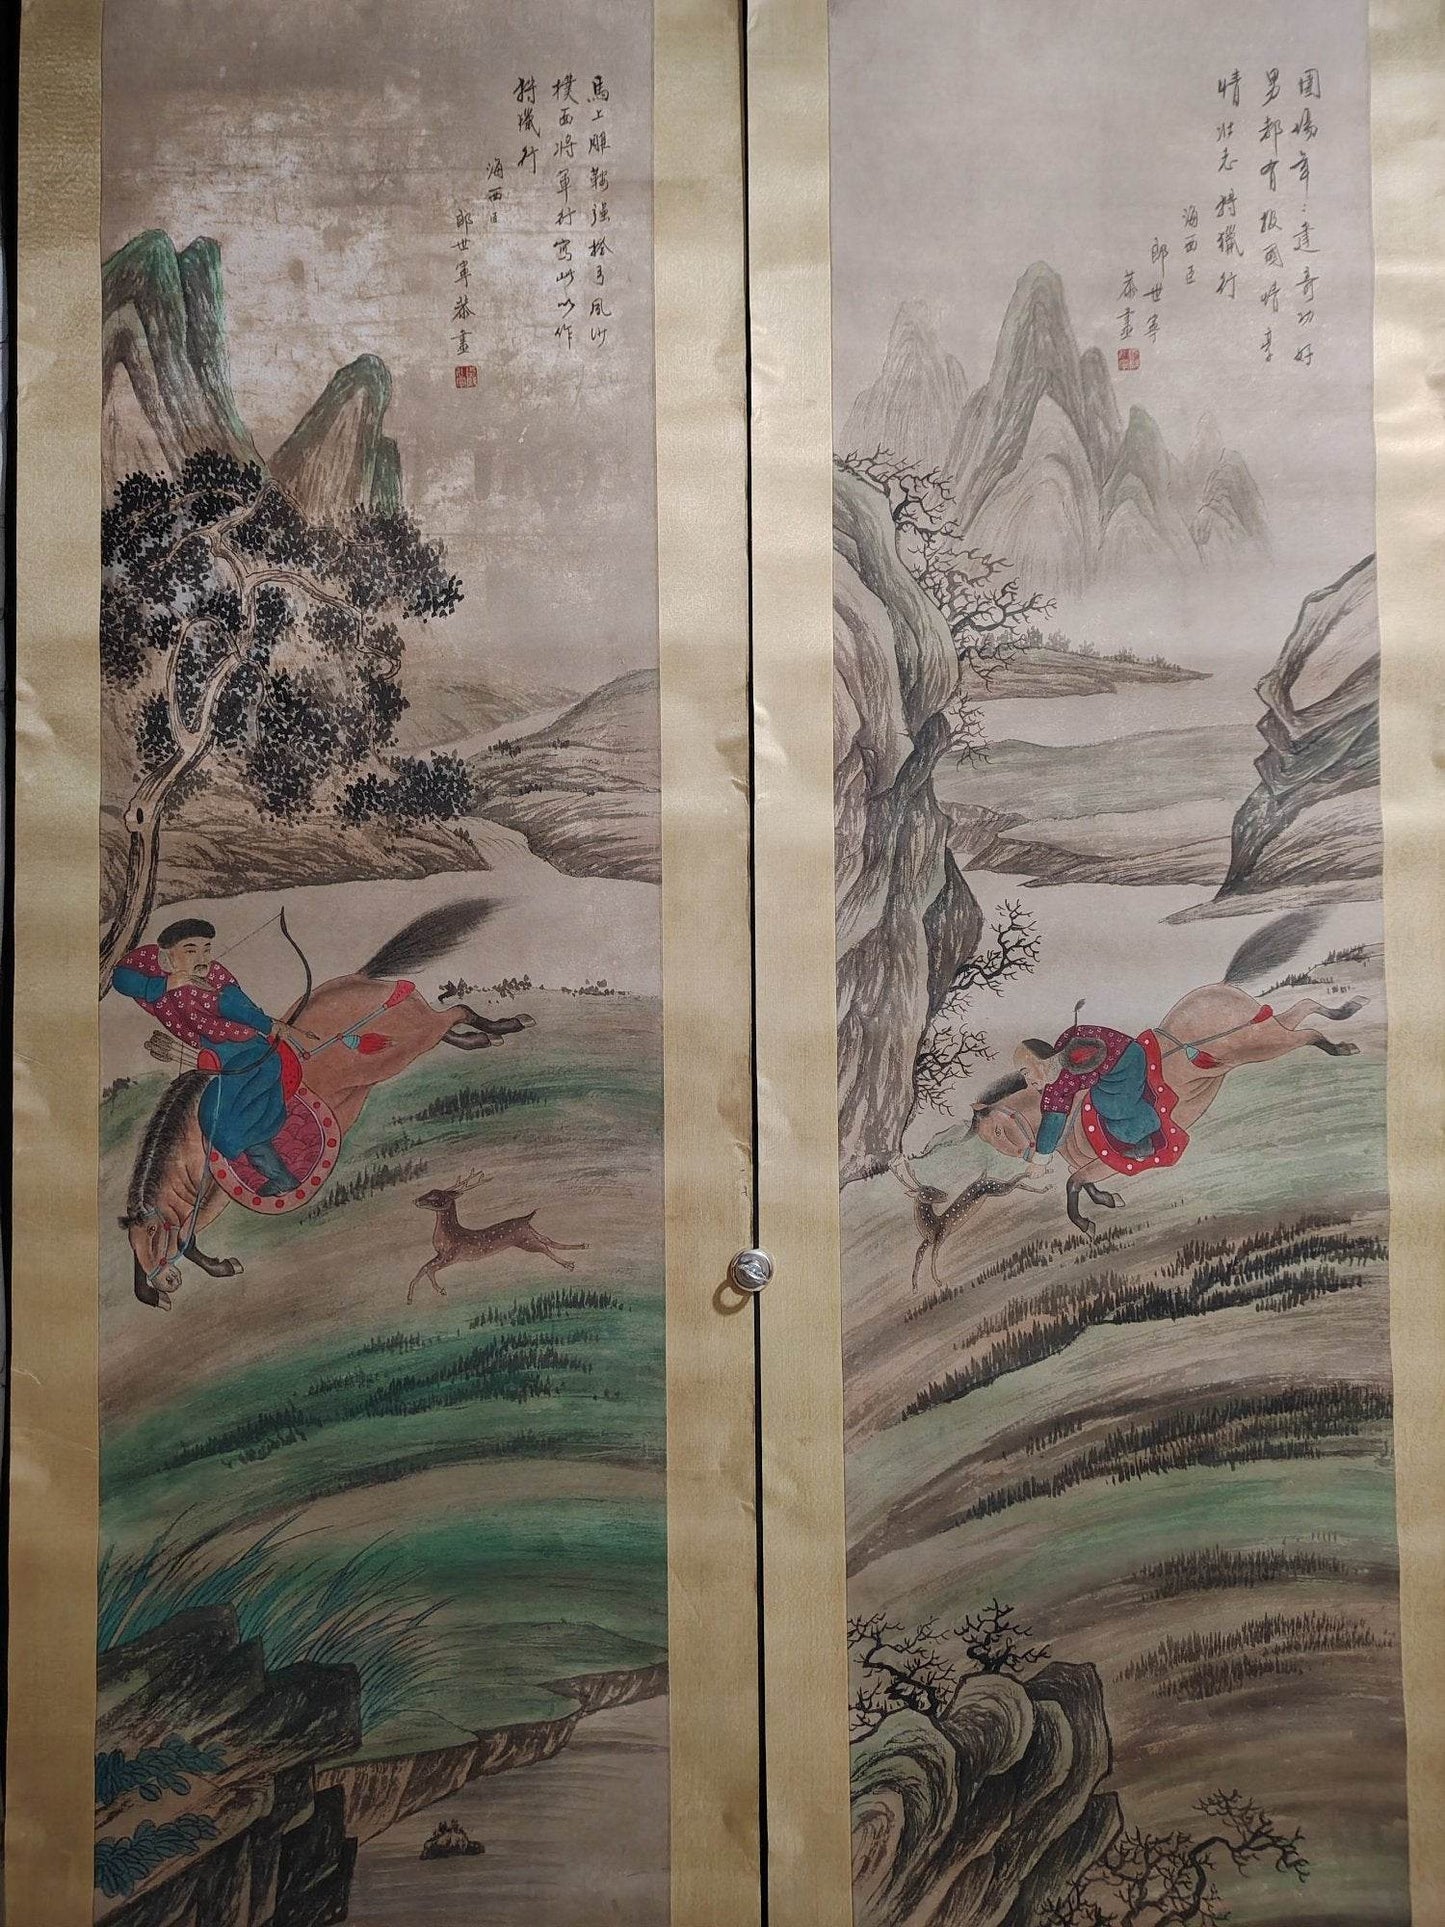 圍場年〻建奇功好
男都有报國情高
情壯志狩獵行
海西臣
郎世寧
恭畫
馬上雕鞍强拾弓風沙
撲面将軍行寫此以作
狩獵行
海西臣
郎世寧恭畫